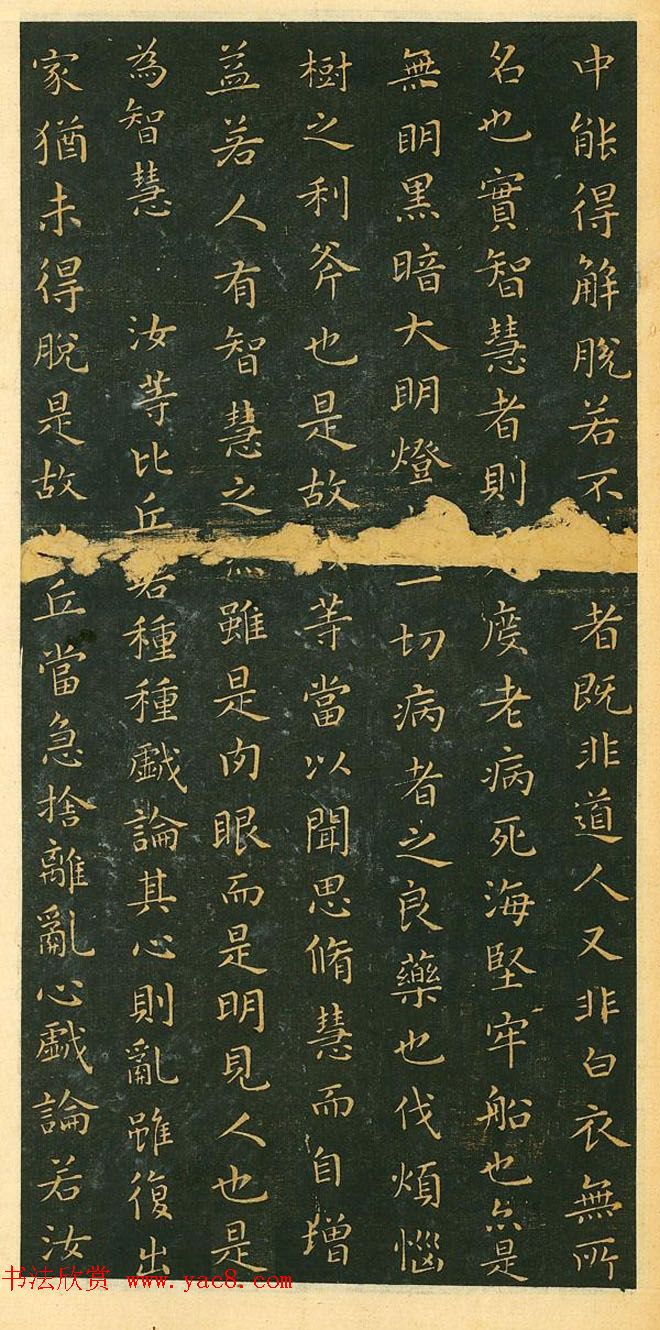 中能得解脫若不者既非道人又非白衣無所
名也實智慧者則度老病死海堅牢船也亦是
無明黒暗大明燈一切病者之良藥也伐煩惱
樹之利斧也是故等當以聞思脩慧而自增
益若人有智慧之雖是肉眼而是明見人也是
為智慧 汝等比丘若種種戲論其心則亂雖復出
家猶未得脫是故丘當急捨離亂心戲論若汝
书法欣赏 www.yac8.com